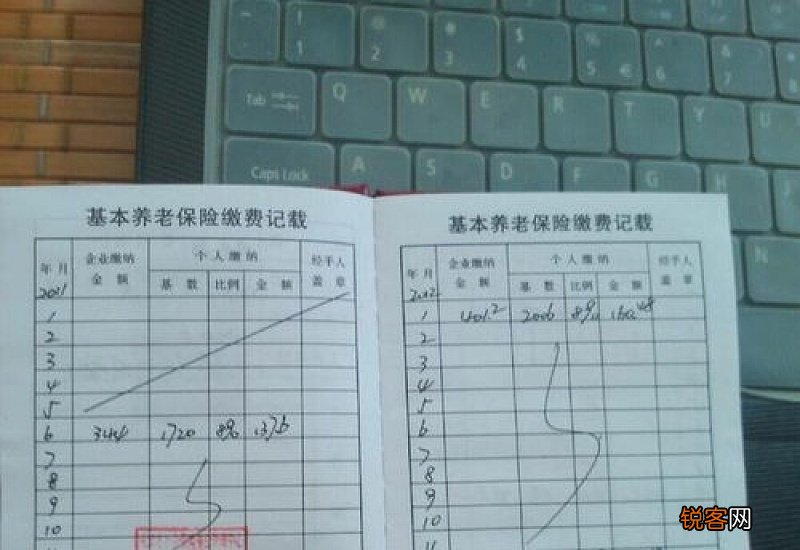 ! 1 @ 2 # 3 $ 4 % 5 € ^ 6 & 7 * 8
Tab Q W E R T Y U
Caps Lock A S D F G H
基本养老保险缴费记载
年月 企业缴纳金额 个人缴纳 经手人盖章
基数 比例 金额
2011
1
2
3
4
5
6 344 1720 8% 137.6
7
8
9
10
基本养老保险缴费记载
年月 企业缴纳金额 个人缴纳 经手人盖章
基数 比例 金额
2012
1 401.2 2006 8% 160.48
2
3
4
5
6
7
8
9
10
11
N
锐客网